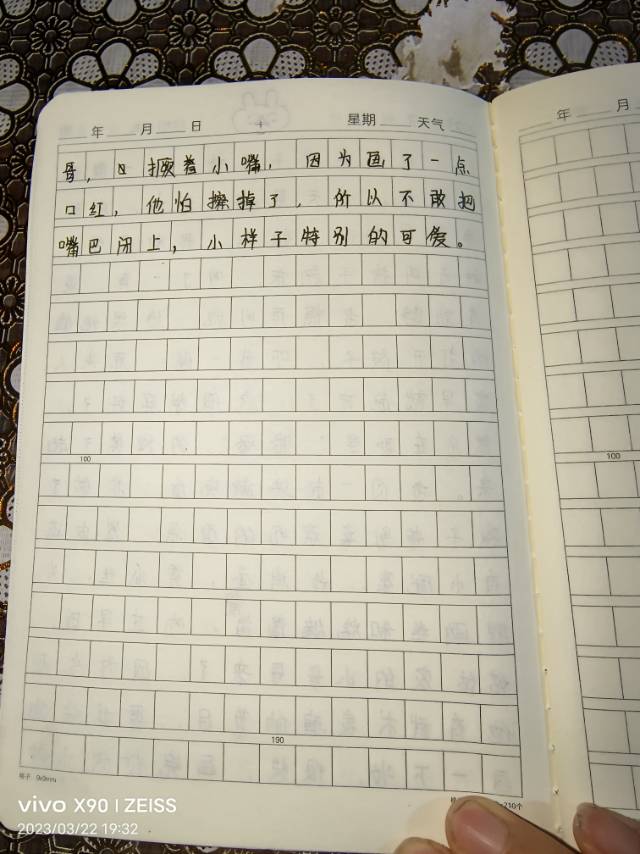 年 月 日 星期 天气
年 月
哥，只撅着小嘴，因为画了一点
口红，他怕擦掉了，所以不敢把
嘴巴闭上，小样子特别的可爱。
100
100
190
格子 9x9mm
210个
vivo X90 | ZEISS
2023/03/22 19:32